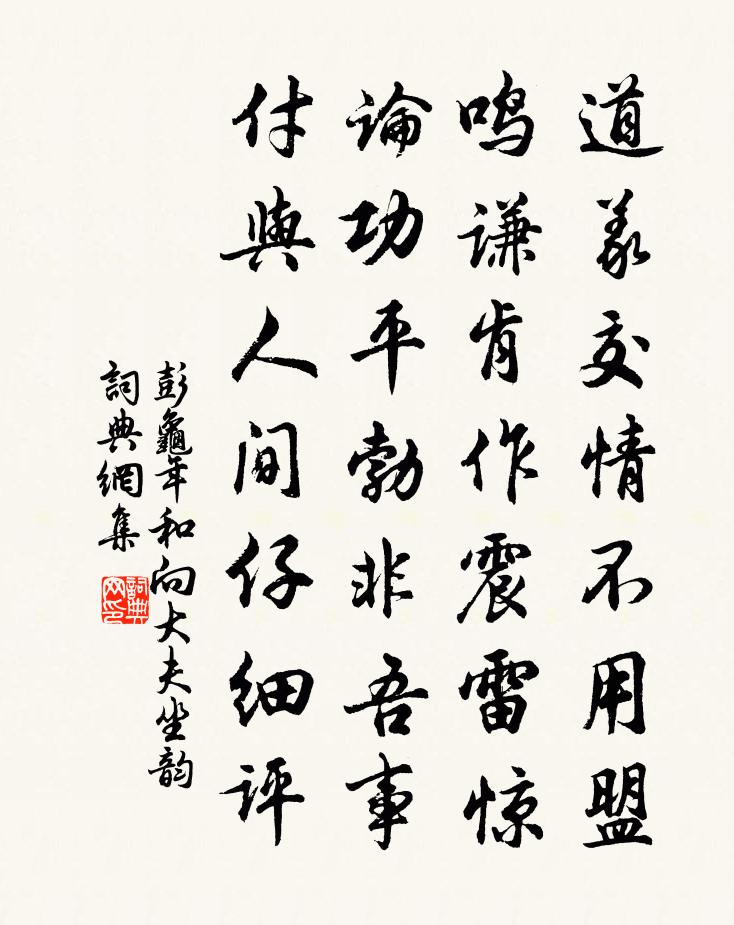 道義交情不用盟
鸣謙肯作震雷惊
論功平勃非吾事
付與人间仔细評
彭龜年和向大夫坐韵
詞典網集
詞典网印